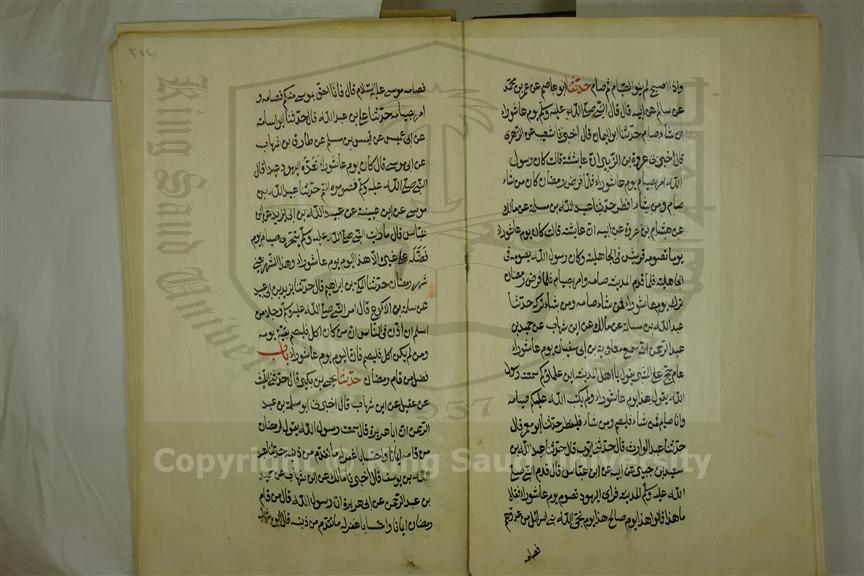 واذا اصبح لم ينو الصيام ثم صام حدثنا ابو عاصم عن عمر بن محمد
عن سالم عن ابيه قال قال النبي صلى الله عليه وسلم يوم عاشوراء
ان شاء صام حدثنا ابو اليمان قال اخبرنا شعيب عن الزهري
قال اخبرني عروة بن الزبير ان عائشة قالت كان رسول
الله امر بصيام يوم عاشوراء فلما فرض رمضان كان من شاء
صام ومن شاء افطر حدثنا عبد الله بن مسلمة عن مالك
عن هشام بن عروة عن ابيه ان عائشة قالت كان يوم عاشوراء
يوما تصومه قريش في الجاهلية وكان رسول الله يصومه في
الجاهلية فلما قدم المدينة صامه وامر بصيامه فلما فرض رمضان
ترك يوم عاشوراء فمن شاء صامه ومن شاء تركه حدثنا
عبد الله بن مسلمة عن مالك عن ابن شهاب عن حميد بن
عبد الرحمن انه سمع معاوية بن ابي سفيان يوم عاشوراء
عام حج على المنبر يقول يا اهل المدينة اين علماؤكم سمعت رسول
الله يقول هذا يوم عاشوراء ولم يكتب الله عليكم صيامه
وانا صائم فمن شاء فليصم ومن شاء فليفطر حدثنا ابو معمر قال
حدثنا عبد الوارث قال حدثنا ايوب قال حدثنا عبد الله بن
سعيد بن جبير عن ابيه عن ابن عباس قال قدم النبي صلى
الله عليه وسلم المدينة فراى اليهود تصوم يوم عاشوراء فقال
ما هذا قالوا هذا يوم صالح هذا يوم نجى الله بني اسرائيل من عدوهم
فصامه
فصامه موسى عليه السلام قال فانا احق بموسى منكم فصامه و
امر بصيامه حدثنا علي بن عبد الله قال حدثنا ابو اسامة
عن ابي عميس عن قيس بن مسلم عن طارق بن شهاب
عن ابي موسى قال كان يوم عاشوراء تعده اليهود عيدا قال
النبي صلى الله عليه وسلم فصوموه انتم حدثنا عبيد الله بن
موسى عن ابن عيينة عن عبيد الله بن ابي يزيد عن ابن
عباس قال ما رايت النبي صلى الله عليه وسلم يتحرى صيام يوم
فضله على غيره الا هذا اليوم يوم عاشوراء وهذا الشهر يعني
شهر رمضان حدثنا المكي بن ابراهيم قال حدثنا يزيد بن ابي عبيد
عن سلمة بن الاكوع قال امر النبي صلى الله عليه وسلم رجلا من
اسلم ان اذن في الناس ان من كان اكل فليصم بقية يومه
ومن لم يكن اكل فليصم فان اليوم يوم عاشوراء باب
فضل من قام رمضان حدثنا يحيى بن بكير قال حدثنا الليث
عن عقيل عن ابن شهاب قال اخبرني ابو سلمة بن عبد
الرحمن ان ابا هريرة قال سمعت رسول الله يقول لرمضان
من قامه ايمانا واحتسابا غفر له ما تقدم من ذنبه حدثنا عبد
الله بن يوسف قال اخبرنا مالك عن ابن شهاب عن حميد
بن عبد الرحمن عن ابي هريرة ان رسول الله قال من قام
رمضان ايمانا واحتسابا غفر له ما تقدم من ذنبه قال ابن شهاب
King Saud University
1957
Copyright © King Saud University